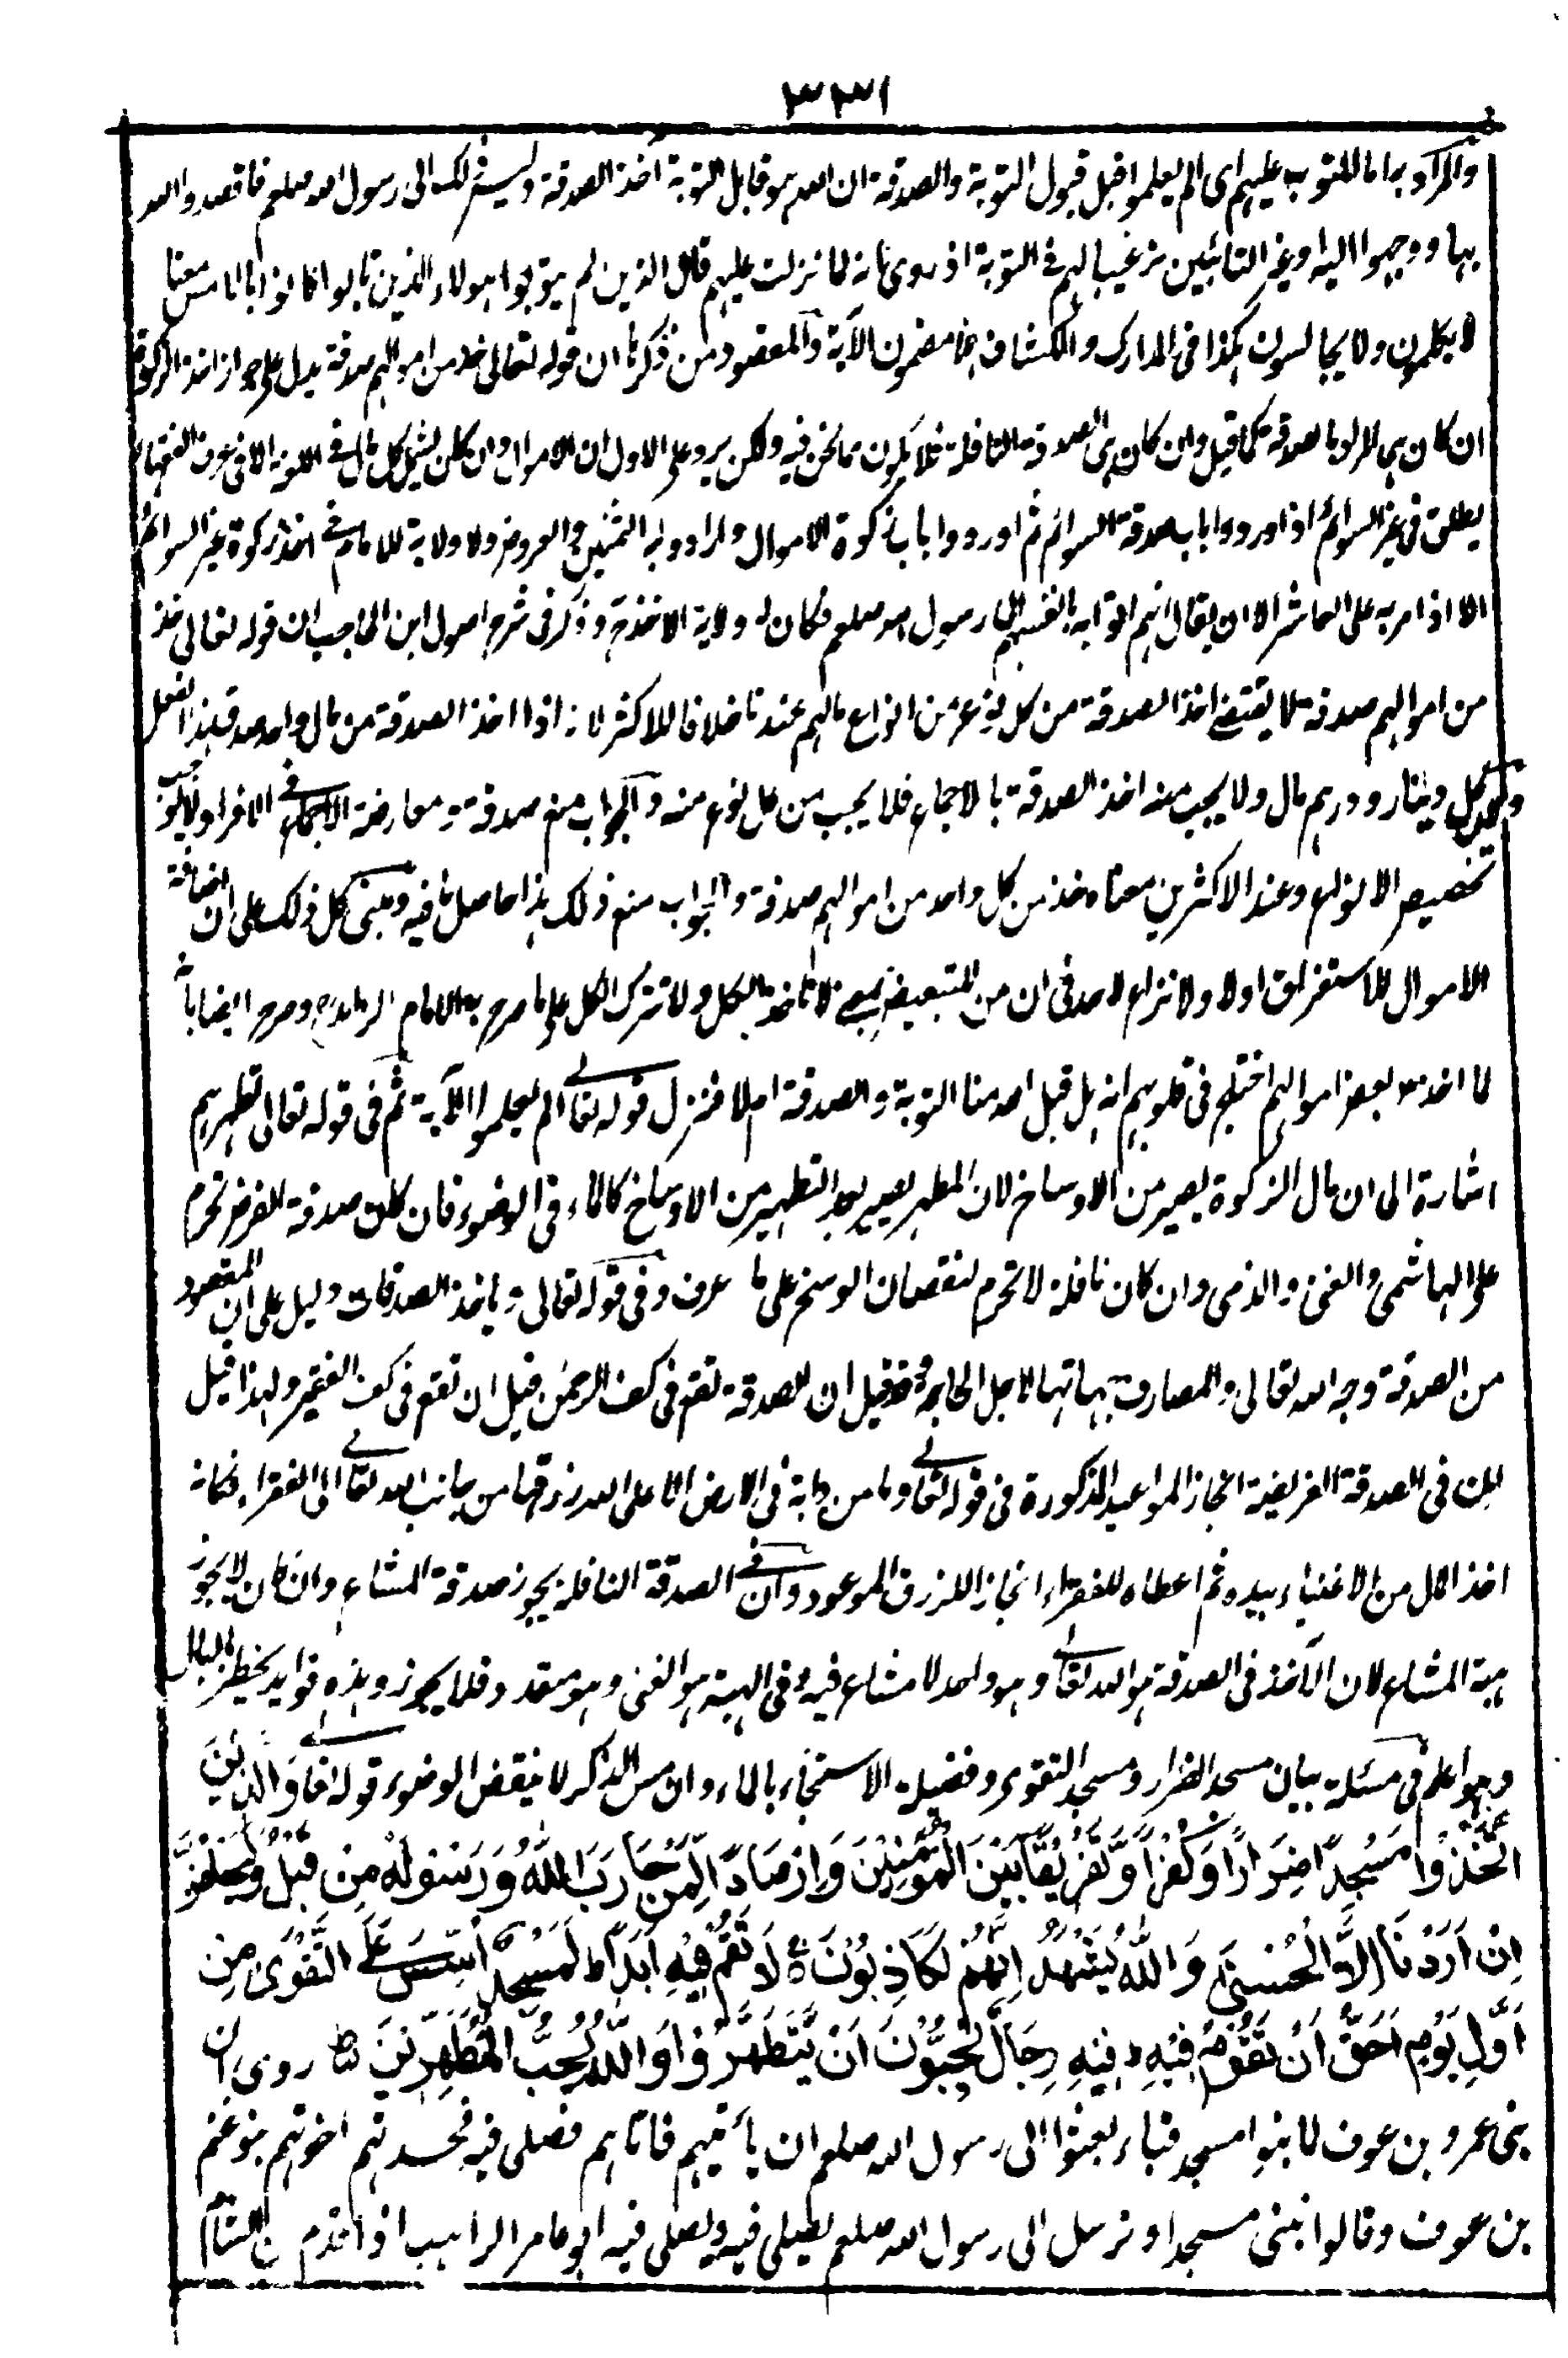 ٣٣١
والمراد به اما للمتوب عليهم اى الم يعلموا قبل قبول التوبة والصدقة ان الله هو قابل التوبة آخذ الصدقة وليس ذلك الى رسول الله صلعم فاقصدوا الله
بها ووجهوا اليه او غير التائبين ترغيبا لهم فى التوبة اذ روى انه لما نزلت عليهم قال الذين لم يتوبوا هولاء الذين تابوا كانوا بالامس معنا
لا يكلمون ولا يجالسون هكذا فى المدارك والكشاف هذا مضمون الآية والمقصود من ذكرها ان قوله تعالى خذ من اموالهم صدقة يدل على جواز اخذ الزكوة
ان كان هى المراد بالصدقة كما قيل وان كان هى الصدقة النافلة فلا يكون مما نحن فيه ولكن يرد على الاول ان الاموال وان كان يشمل كل مال فى اللغة الا فى عرف الفقهاء
يطلق فى غير السوائم اذ اوردوا باب صدقة السوائم ثم اوردوا باب زكوة الاموال وارادوا به الثمنين والعروض ولا ولاية للامام فى اخذ زكوة غير السوائم
الا اذا مر به على العاشر الا ان يقال انهم اتوا به بانفسهم الى رسول الله صلعم فكان له ولاية الاخذ وذكر فى شرح اصول ابن الحاجب ان قوله تعالى خذ
من اموالهم صدقة لا يقتضى اخذ الصدقة من كل نوع من انواع مالهم عندنا خلافا للاكثر لانه اذا اخذ الصدقة من مال واحد صدق هذا الفعل
ولان كل دينار ودرهم مال ولا يجب منه اخذ الصدقة بالاجماع فلا يجب من كل نوع منه والجواب منع صدقة ومعارضة الاجماع فى الافراد لا يوجب
تخصيص الانواع وعند الاكثرين معناه خذ من كل واحد من اموالهم صدقة والجواب منع ذلك هذا حاصل ما فيه ومبنى كل ذلك على ان اضافة
الاموال للاستغراق اولا ولا نزاع لاحد فى ان من للتبعيض يعنى لا تاخذ الكل ولا تترك الكل على ما صرح به الامام الزاهد وصرح ايضا بانه
لما اخذ بعض اموالهم اختلج فى قلوبهم انه هل قبل الله منا التوبة والصدقة ام لا فنزل قوله تعالى الم يعلموا الآية ثم فى قوله تعالى تطهرهم
اشارة الى ان مال الزكوة يصير من الاوساخ لان المطهر يصير بعد التطهير من الاوساخ كالماء فى الوضوء فان كان صدقة الفرض تحرم
على الهاشمى والغنى والذمى وان كان نافلة لا تحرم لنقصان الوسخ على ما عرف وفى قوله تعالى وياخذ الصدقات دليل على ان المقصود
من الصدقة وجه الله تعالى والمصارف جهاتها لاجل الحاجة وقد قيل ان الصدقة تقع فى كف الرحمن قبل ان تقع فى كف الفقير ولهذا قيل
ان فى الصدقة الفريضة انجاز المواعيد المذكورة فى قوله تعالى وما من دابة فى الارض الا على الله رزقها من جانب الله تعالى الى الفقراء فكانه
اخذ المال من الاغنياء بيده ثم اعطاه للفقراء انجاز للرزق الموعود وان فى الصدقة النافلة يجوز صدقة المشاع وان كان لا يجوز
هبة المشاع لان الآخذ فى الصدقة هو الله تعالى وهو واحد لا مشاع فيه وفى الهبة هو الغنى وهو متعدد فلا يجوز وهذه فوايد تخطر بالبال
وهو اعلم فى مسئلة بيان مسجد الضرار ومسجد التقوى وفضيلة الاستنجاء بالماء وان مس الذكر لا ينقض الوضوء قوله تعالى وَالَّذِيْنَ
اتَّخَذُوْا مَسْجِدًا ضِرَارًا وَّكُفْرًا وَّتَفْرِيْقًا بَيْنَ الْمُؤْمِنِيْنَ وَاِرْصَادًا لِّمَنْ حَارَبَ اللّٰهَ وَرَسُوْلَهٗ مِنْ قَبْلُ وَلَيَحْلِفُنَّ
اِنْ اَرَدْنَا اِلَّا الْحُسْنٰى وَاللّٰهُ يَشْهَدُ اِنَّهُمْ لَكَاذِبُوْنَ ۵ لَا تَقُمْ فِيْهِ اَبَدًا ط لَمَسْجِدٌ اُسِّسَ عَلَى التَّقْوٰى مِنْ
اَوَّلِ يَوْمٍ اَحَقُّ اَنْ تَقُوْمَ فِيْهِ ط فِيْهِ رِجَالٌ يُّحِبُّوْنَ اَنْ يَّتَطَهَّرُوْا وَاللّٰهُ يُحِبُّ الْمُطَّهِّرِيْنَ ط روى ان
بنى عمرو بن عوف لما بنوا مسجد قباء بعثوا الى رسول الله صلعم ان ياتيهم فاتاهم فصلى فيه فحسدتهم اخوتهم بنو غنم
بن عوف وقالوا نبنى مسجدا ونرسل الى رسول الله صلعم يصلى فيه ويصلى فيه ابو عامر الراهب اذا قدم من الشام